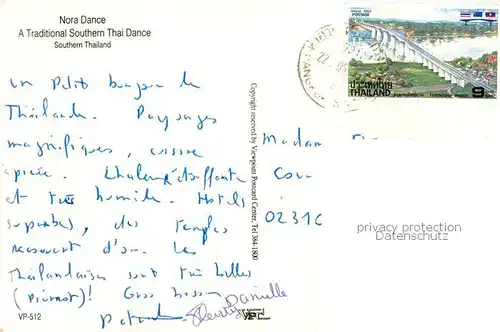 Nora Dance
A Traditional Southern Thai Dance
Southern Thailand
un Petit bonjour de
Thaïlande. Paysages
magnifiques, cuisine
épicée. Chaleur étouffante
et très humide. Hotels
superbes, des temples
recouvert d'or. Les
Thaïlandaises sont très belles
(Pierrot)! Gros bisou
Danielle
VP-512
Copyright reserved by Viewpoint Postcard Center, Tel 384-1800
POSTAGE
ประเทศไทย
THAILAND
9
Madam
0231C
privacy protection
Datenschutz